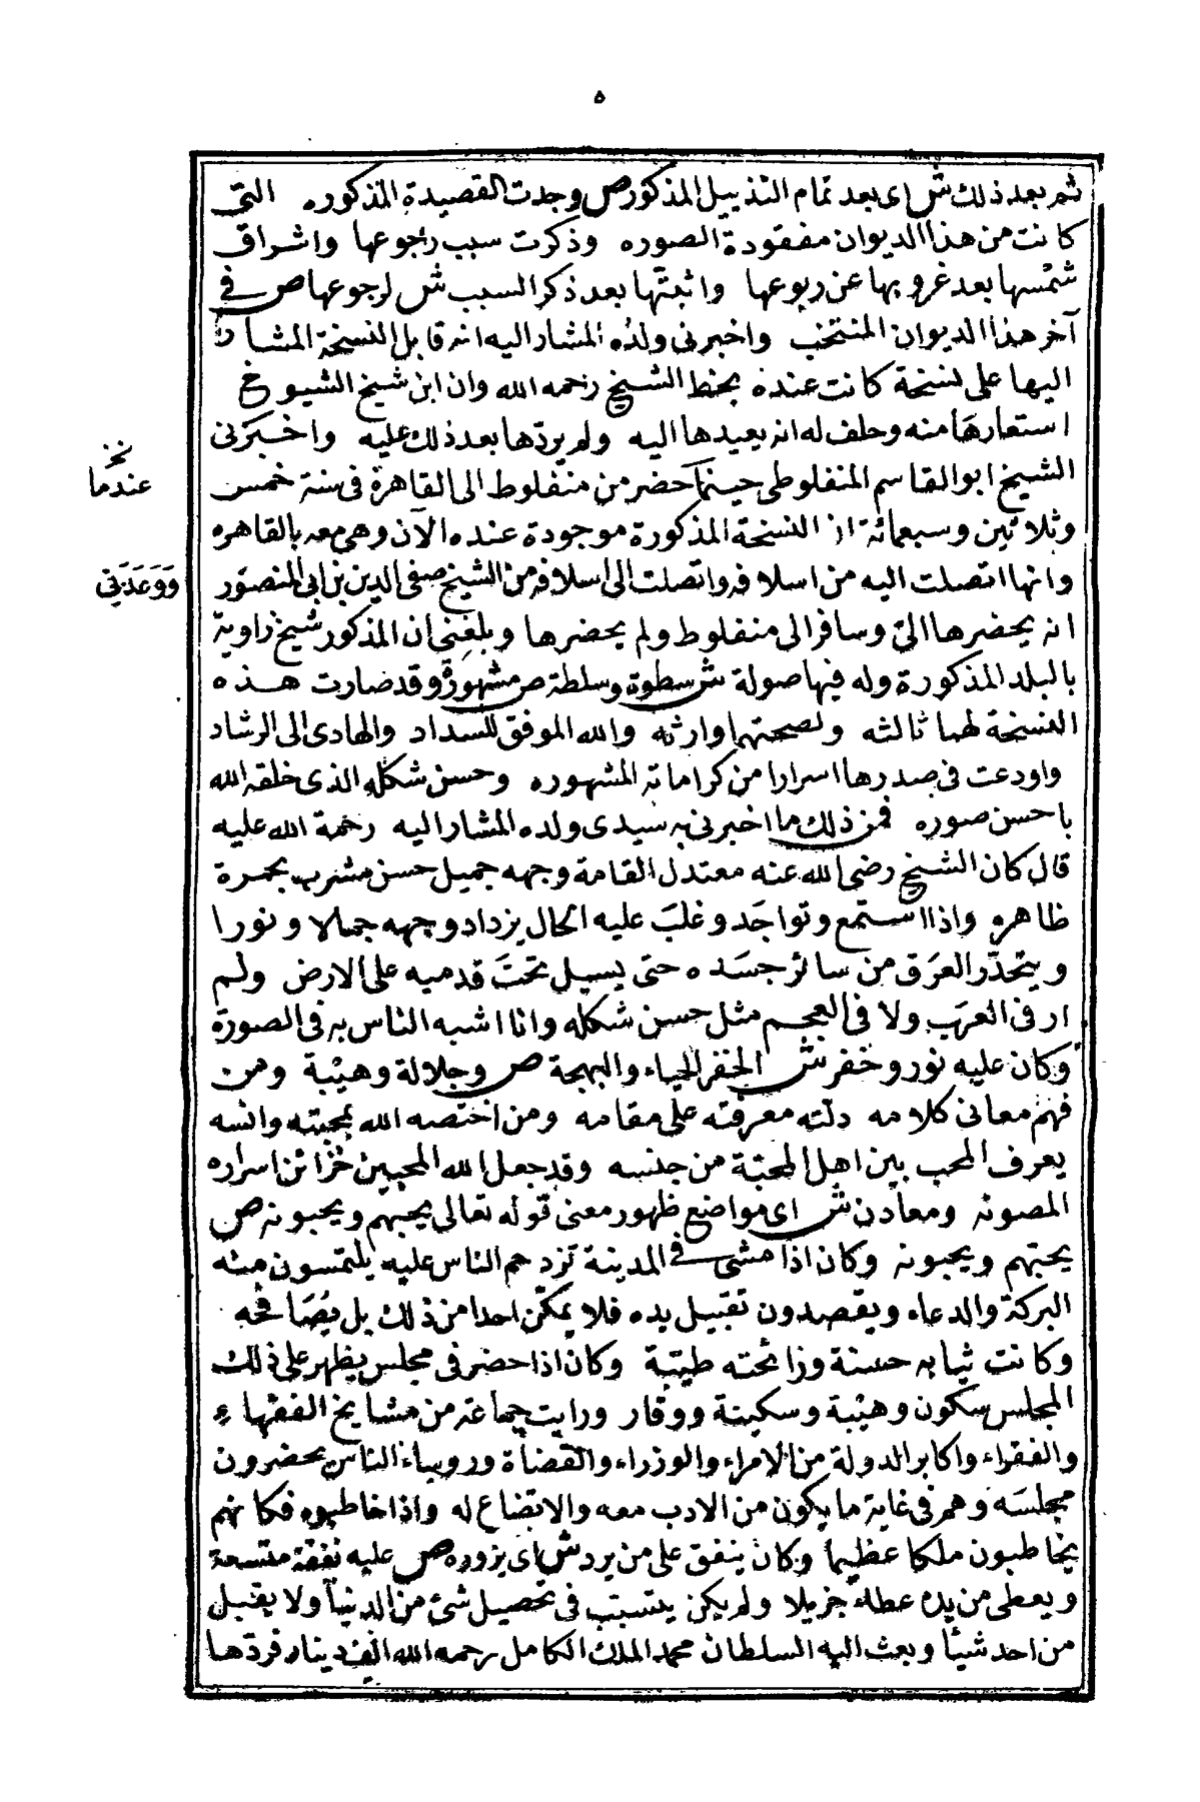 ٥
ثم بعد ذلك ش اى بعد تمام التذييل المذكور ص وجدت القصيدة المذكوره التى
كانت من هذا الديوان مفقودة الصوره وذكرت سبب رجوعها واشراق
شمسها بعد غروبها عن ربوعها واثبتّها بعد ذكر السبب ش لرجوعها ص فى
آخر هذا الديوان المنتخب واخبرنى ولده المشار اليه انه قابل النسخة المشار
اليها على نسخة كانت عنده بخط الشيخ رحمه الله وان ابن شيخ الشيوخ
استعارها منه وحلف له انه يعيدها اليه ولم يردّها بعد ذلك عليه واخبرنى
نخ
عندما
الشيخ ابو القاسم المنفلوطى حينما حضر من منفلوط الى القاهرة فى سنة خمس
وثلاثين وسبعمائة ان النسخة المذكورة موجودة عنده الآن وهى معه بالقاهره
وانها اتصلت اليه من اسلافه واتصلت الى اسلافه من الشيخ صفى الدين بن ابى المنصور
وَوَعَدَنِى
انه يحضرها الىّ وسافر الى منفلوط ولم يحضرها وبلغنى ان المذكور شيخ زاوية
بالبلد المذكورة وله فيها صولة ش سطوة وسلطة ص مشهورة وقد صارت هذه
النسخة لهما ثالثه ولصحتهما وارثه والله الموفق للسداد والهادى الى الرشاد
واودعت فى صدرها اسرارا من كراماته المشهوره وحسن شكله الذى خلقه الله
باحسن صوره فمن ذلك ما اخبرنى به سيدى ولده المشار اليه رحمة الله عليه
قال كان الشيخ رضى الله عنه معتدل القامة وجهه جميل حسن مشرب بحمرة
ظاهره واذا استمع وتواجَد وغلبَ عليه الحال يزداد وجهه جمالا ونورا
ويتحدّر العرَق من سائر جسَده حتى يسيل تحتَ قدميه على الارض ولم
ار فى العرَب ولا فى العجم مثل حسن شكله وانا اشبه الناس به فى الصورة
وكان عليه نور وخفر ش الخفر الحياء والبهجة ص وجلالة وهيبة ومن
فهم معانى كلامه دلّته معرفته على مقامه ومن اختصه الله بمحبته وانسه
يعرف المحب بين اهل المحبّة من جنسه وقد جعل الله المحبين خزائن اسراره
المصونه ومعادن ش اى مواضع ظهور معنى قوله تعالى يحبهم ويحبونه ص
يحبّهم ويحبونه وكان اذا مشى فى المدينة تزدحم الناس عليه يلتمسون منه
البركة والدعاء ويقصدون تقبيل يده فلا يمكّن احدا من ذلك بل يُصَافحه
وكانت ثيابه حسنة ورائحته طيّبة وكان اذا حضر فى مجلس يظهر على ذلك
المجلس سكون وهيبة وسكينة ووقار ورايت جماعة من مشايخ الفقهاء
والفقراء واكابر الدولة من الامراء والوزراء والقضاة وروساء الناس يحضرون
مجلسَه وهم فى غاية ما يكون من الادب معه والاتضاع له واذا خاطبوه فكانهم
يخاطبون ملكا عظيما وكان ينفق على من يرد ش اى يزوره ص عليه نفقة متسعة
ويعطى من يده عطاء جزيلا ولم يكن يتسبّب فى تحصيل شئ من الدنيا ولا يقبل
من احد شيئا وبعث اليه السلطان محمد الملك الكامل رحمه الله الف دينار فردّها